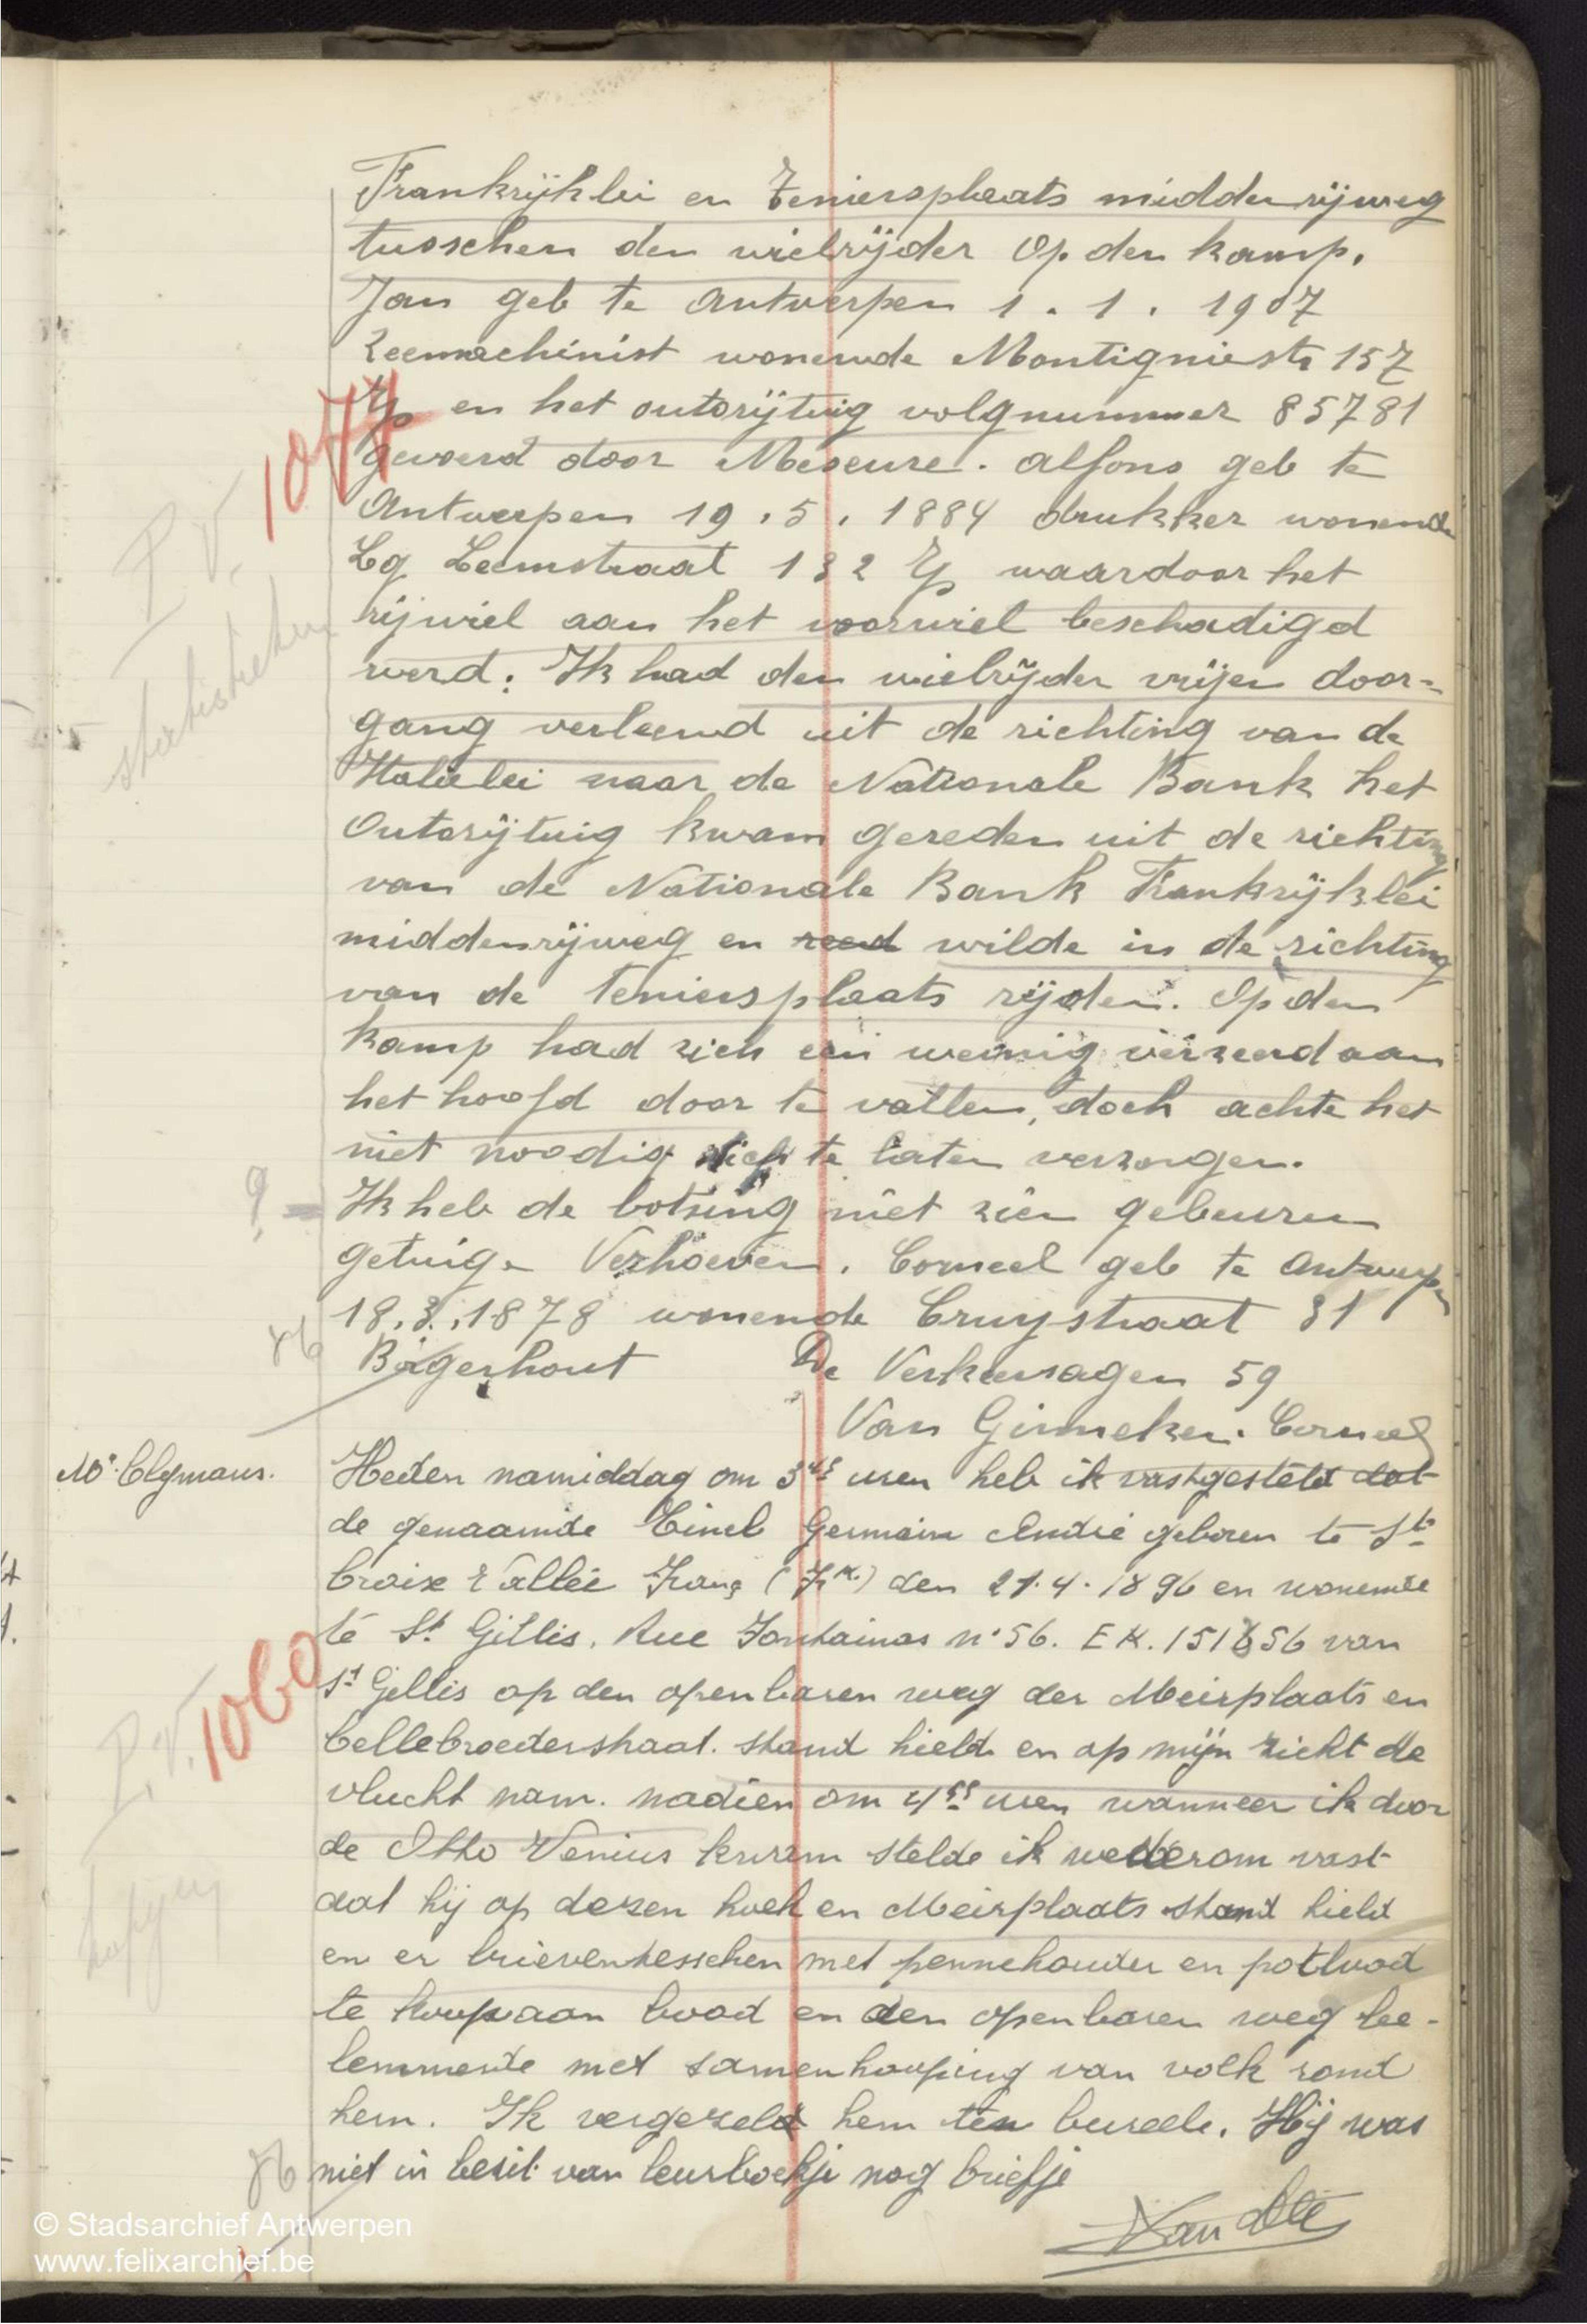 Frankrijklei en Teniersplaats middenrijweg
tusschen den wielrijder Op den kamp.
Jan geb te Antwerpen 1. 1. 1907
Zeemachinist wonende Montigniestr 157
en het autorijtuig volgnummer 85781
1077
gevoerd door Meseure. Alfons geb te
P.V.
Antwerpen 19.5.1884 drukker wonende
Lg Leemstraat 132 waardoor het
statistieken
rijwiel aan het voorwiel beschadigd
werd: Ik had den wielrijder vrijen door-
gang verleend uit de richting van de
Italielei naar de Nationale Bank het
Autorijtuig kwam gereden uit de richting
van de Nationale Bank Frankrijklei
middenrijweg en reed wilde in de richting
van de Teniersplaats rijden. Op den
kamp had zich een weinig verzeerd aan
het hoofd door te vallen, doch achte het
niet noodig zich te laten verzorgen.
? Ik heb de botsing niet zien gebeuren
getuige Verhoeven. Corneel geb te Antwerpen
18.3.1878 wonende Cruystraat 31
Borgerhout De Verkeersagen 59
Van Ginneken. Corneel
Mr Clymans.
Heden namiddag om 3 uren heb ik vastgesteld dat
de genaamde Germain André geboren te Ste
Croix Vallée Franç (Fr.) den 21.4.1896 en wonende
te St Gillis, Rue Fontainas n° 56. E K. 151656 van
1060
P.V.
St Gillis op den openbaren weg der Meirplaats en
Cellebroederstraat. stand hield en op mijn zicht de
vlucht nam. nadien om 4 uren wanneer ik door
de Otto Venius kwam stelde ik wederom vast
dat hij op dezen hoek en Meirplaats stand hield
en er brieventesschen met pennehouder en potlood
te koop aan bood en den openbaren weg bee-
lemmerde met samenhooping van volk rond
hem. Ik vergezeld hem ten bureele. Hij was
niet in bezit van leurboekje nog briefje
© Stadsarchief Antwerpen
www.felixarchief.be